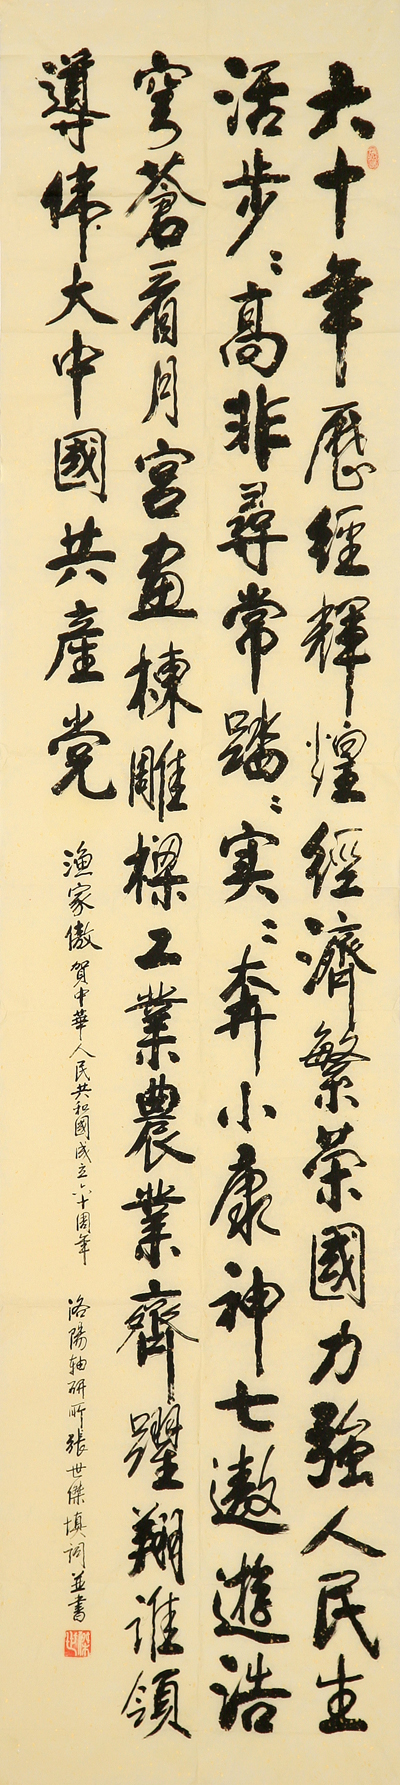 六十年歷經輝煌經濟繁荣國力強人民生
活步〻高非尋常踏〻实〻奔小康神七遨遊浩
穹蒼看月宮画棟雕樑工業農業齊躍翔誰領
導偉大中國共產党
渔家傲 賀中華人民共和國成立六十周年 洛陽轴研所張世傑填詞並書